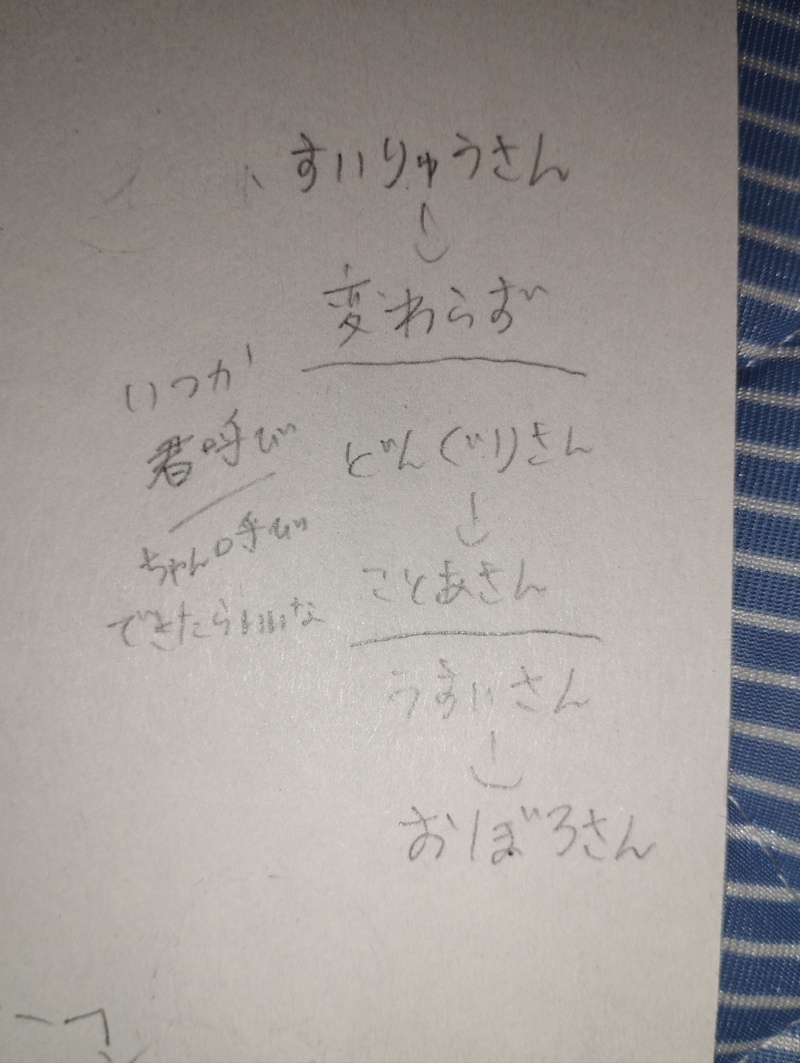 すいりゅうさん
↓
変わらず
どんぐりさん
↓
ことあさん
うすいさん
↓
おぼろさん
いつか
君呼び
ちゃん呼び
できたらいいな